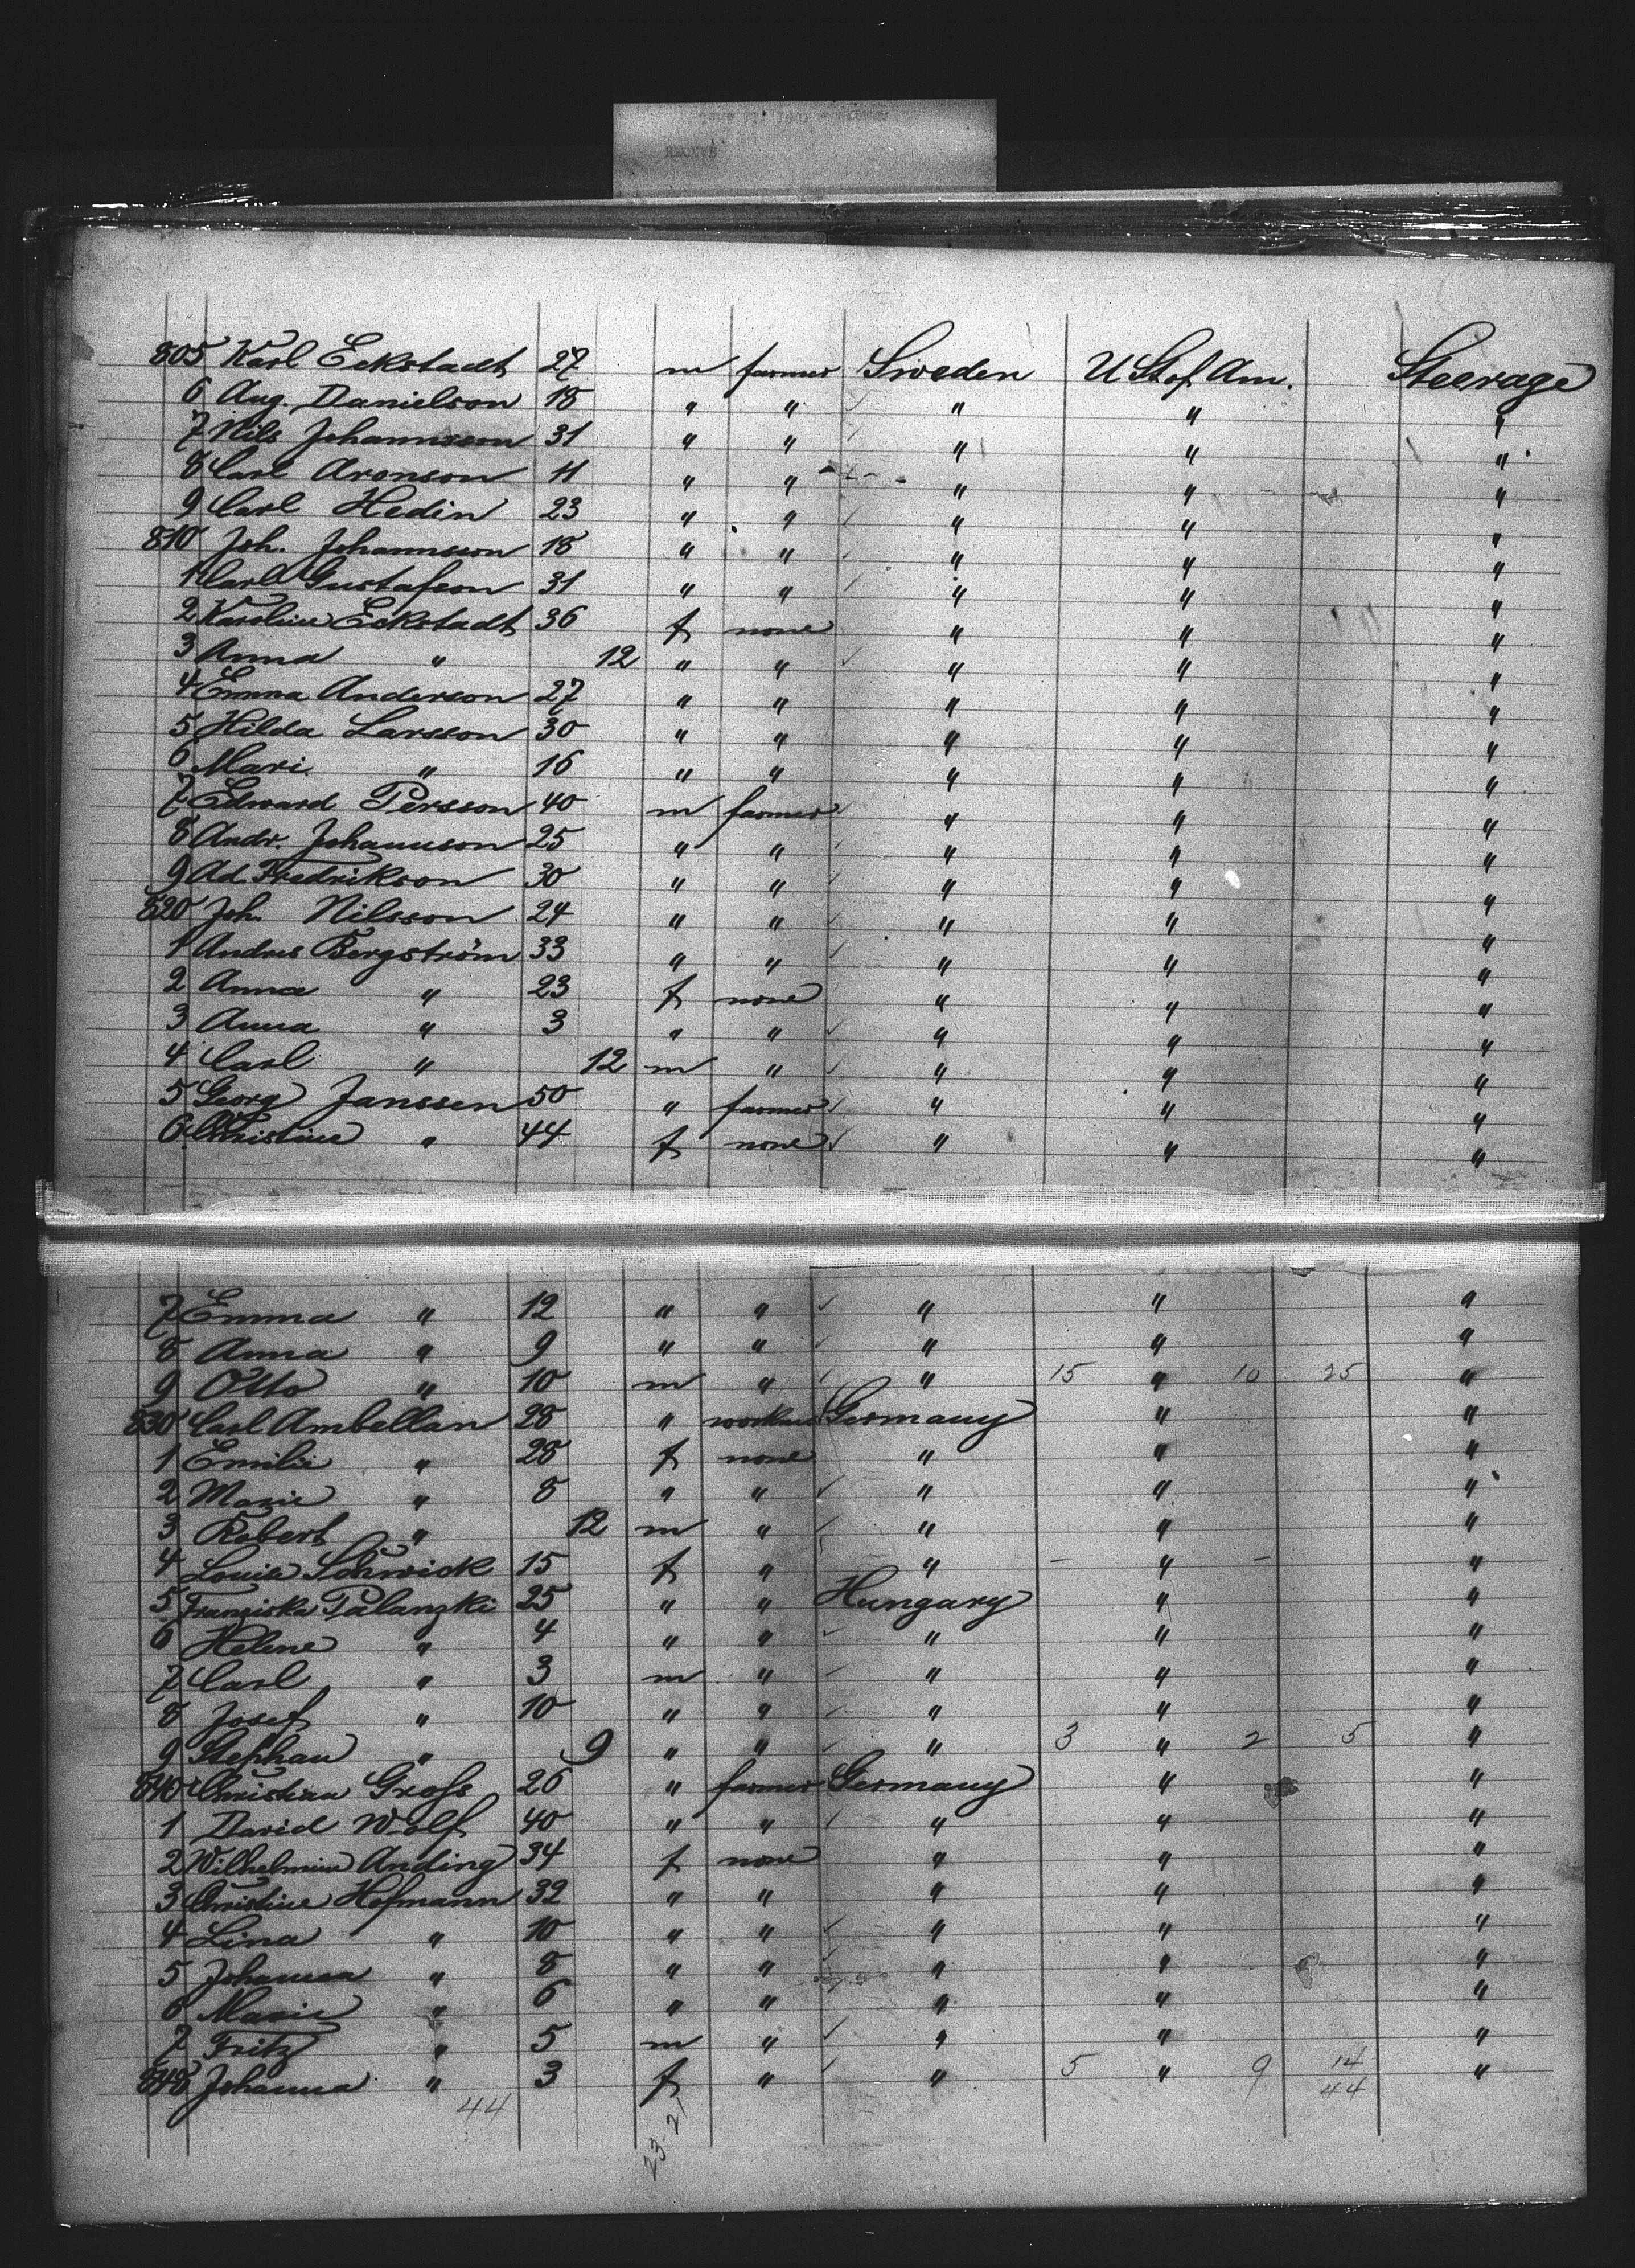 805 Karl Eckstadt 27 m farmer Sweden U St of Am. Steerage
6 Aug. Danielson 18 " " " " "
7 Nils Johannsson 31 " " " " "
8 Carl Aronson 11 " " " " "
9 Carl Hedin 23 " " " " "
810 Joh. Johannsson 18 " " " " "
1 Carl Gustafson 31 " " " " "
2 Karoline Eckstadt 36 f none " " "
3 Anna " 12 " " " " "
4 Emma Anderson 27 " " " " "
5 Hilda Larsson 30 " " " " "
6 Mari " 16 " " " " "
7 Edward Persson 40 m farmer " " "
8 Andr. Johannson 25 " " " " "
9 Ad. Fredrikson 30 " " " " "
820 Joh. Nilsson 24 " " " " "
1 Andres Bergström 33 " " " " "
2 Anna " 23 f none " " "
3 Anna " 3 " " " " "
4 Carl " 12 m " " " "
5 Georg Janssen 50 " farmer " " "
6 Christine " 44 f none " " "
7 Emma " 12 " " " " "
8 Anna " 9 " " " " "
9 Otto " 10 m " " 15 " 10 25 "
830 Carl Ambellan 28 " Germany " "
1 Emilie " 28 f none " " "
2 Marie " 8 " " " " "
3 Robert " 12 m " " " "
4 Louise Schwick 15 f " " - " - "
5 Franziska Palanzki 25 " " Hungary " "
6 Helene " 4 " " " " "
7 Carl " 3 m " " " "
8 Josef " 10 " " " " "
9 Stephan " 9 " " " 3 " 2 5 "
840 Christian Groß 26 " farmer Germany " "
1 David Wolf 40 " " " " "
2 Wilhelmine Anding 34 f none " " "
3 Christine Hofmann 32 " " " " "
4 Lina " 10 " " " " "
5 Johanna " 8 " " " " "
6 Marie " 6 " " " " "
7 Fritz " 5 m " " " "
848 Johanna " 3 f " " 5 " 9 14 "
44 44
23-21